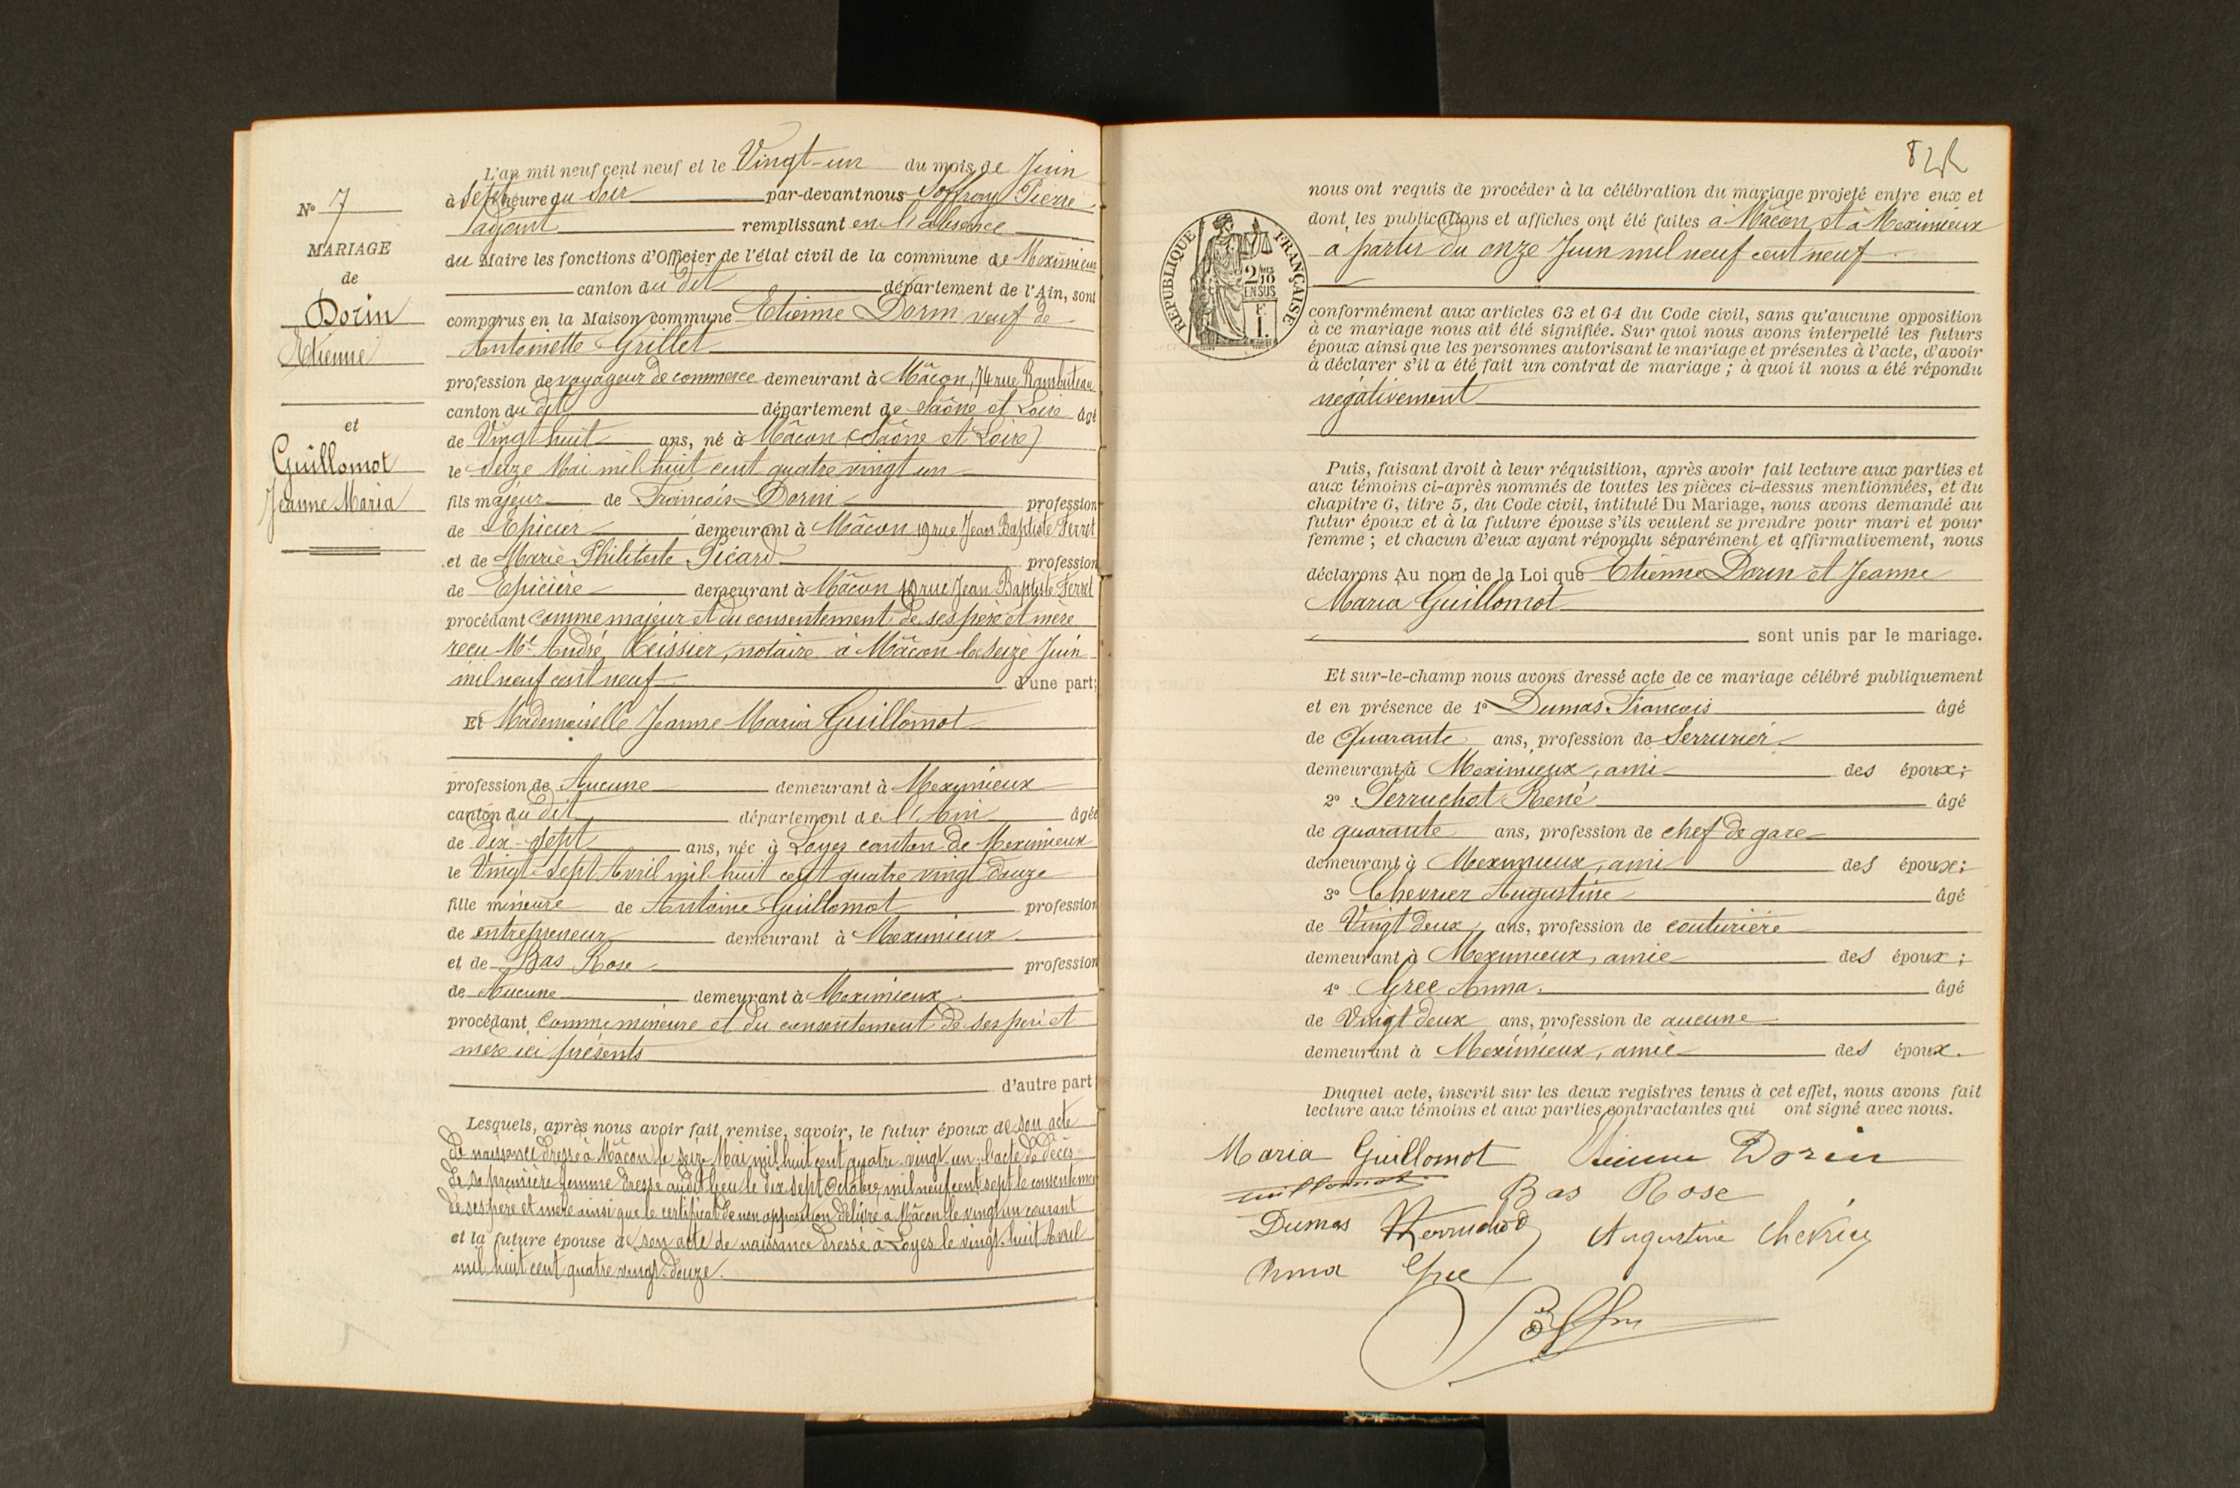 L'an mil neuf cent neuf et le Vingt-un du mois de Juin
à sept heure du soir par-devant nous Joffroy Pierre
remplissant en l'absence
du Maire les fonctions d'Officier de l'état civil de la commune de Meximieux
canton du dit département de l'Ain, sont
comparus en la Maison commune Etienne Dorin veuf de
Antoinette Grillet
profession de voyageur de commerce demeurant à Mâcon, 74 rue Rambuteau
canton du dit département de Saône et Loire âgé
de Vingt huit ans, né à Mâcon (Saône et Loire)
le Seize Mai mil huit cent quatre vingt un
fils majeur de François Dorin profession
de Epicier demeurant à Mâcon 19 rue Jean Baptiste Ferret
et de Marie Philiberte Picard profession
de Epicière demeurant à Mâcon 19 rue Jean Baptiste Ferret
procédant comme majeur et du consentement de ses père et mère
reçu Me André Teissier, notaire à Mâcon le seize Juin
mil neuf cent neuf d'une part;
Et Mademoiselle Jeanne Maria Guillomot
profession de Aucune demeurant à Meximieux
canton du dit département de l'Ain âgée
de dix-sept ans, née à Loyes canton de Meximieux
le Vingt-sept Avril mil huit cent quatre vingt douze
fille mineure de Antoine Guillomot profession
de entrepreneur demeurant à Meximieux
et de Bas Rose profession
de Aucune demeurant à Meximieux
procédant comme mineure et du consentement de ses père et
mère ici présents
d'autre part
Lesquels, après nous avoir fait remise, savoir, le futur époux de son acte
de naissance dressé à Mâcon le seize Mai mil huit cent quatre-vingt-un, l'acte de décès
de sa première femme dressé audit lieu le dix sept Octobre mil neuf cent sept le consentement
de ses père et mère ainsi que le certificat de non opposition délivré à Mâcon le vingt un courant
et la future épouse de son acte de naissance dressé à Loyes le vingt-huit Avril
mil huit cent quatre vingt-douze.
N° 7
MARIAGE
de
Dorin
Etienne
et
Guillomot
Jeanne Maria
82R
nous ont requis de procéder à la célébration du mariage projeté entre eux et
dont les publications et affiches ont été faites à Mâcon et à Meximieux
à partir du onze Juin mil neuf cent neuf
RÉPUBLIQUE FRANÇAISE
2/10
EN SUS
1F.
conformément aux articles 63 et 64 du Code civil, sans qu'aucune opposition
à ce mariage nous ait été signifiée. Sur quoi nous avons interpellé les futurs
époux ainsi que les personnes autorisant le mariage et présentes à l'acte, d'avoir
à déclarer s'il a été fait un contrat de mariage; à quoi il nous a été répondu
négativement
Puis, faisant droit à leur réquisition, après avoir fait lecture aux parties et
aux témoins ci-après nommés de toutes les pièces ci-dessus mentionnées, et du
chapitre 6, titre 5, du Code civil, intitulé Du Mariage, nous avons demandé au
futur époux et à la future épouse s'ils veulent se prendre pour mari et pour
femme; et chacun d'eux ayant répondu séparément et affirmativement, nous
déclarons Au nom de la Loi que Etienne Dorin et Jeanne
Maria Guillomot
sont unis par le mariage.
Et sur-le-champ nous avons dressé acte de ce mariage célébré publiquement
et en présence de 1° Dumas François âgé
de Quarante ans, profession de Serrurier
demeurant à Meximieux, ami des époux;
2° Perruchot René âgé
de quarante ans, profession de chef de gare
demeurant à Meximieux, ami des époux;
3° Chevrier Augustine âgé
de Vingt deux ans, profession de couturière
demeurant à Meximieux, amie des époux;
4° Grec Anna. âgé
de Vingt deux ans, profession de aucune
demeurant à Meximieux, amie des époux.
Duquel acte, inscrit sur les deux registres tenus à cet effet, nous avons fait
lecture aux témoins et aux parties contractantes qui ont signé avec nous.
Maria Guillomot Etienne Dorin
Guillomot Bas Rose
Dumas Perruchot Augustine Chevrier
Anna Grec